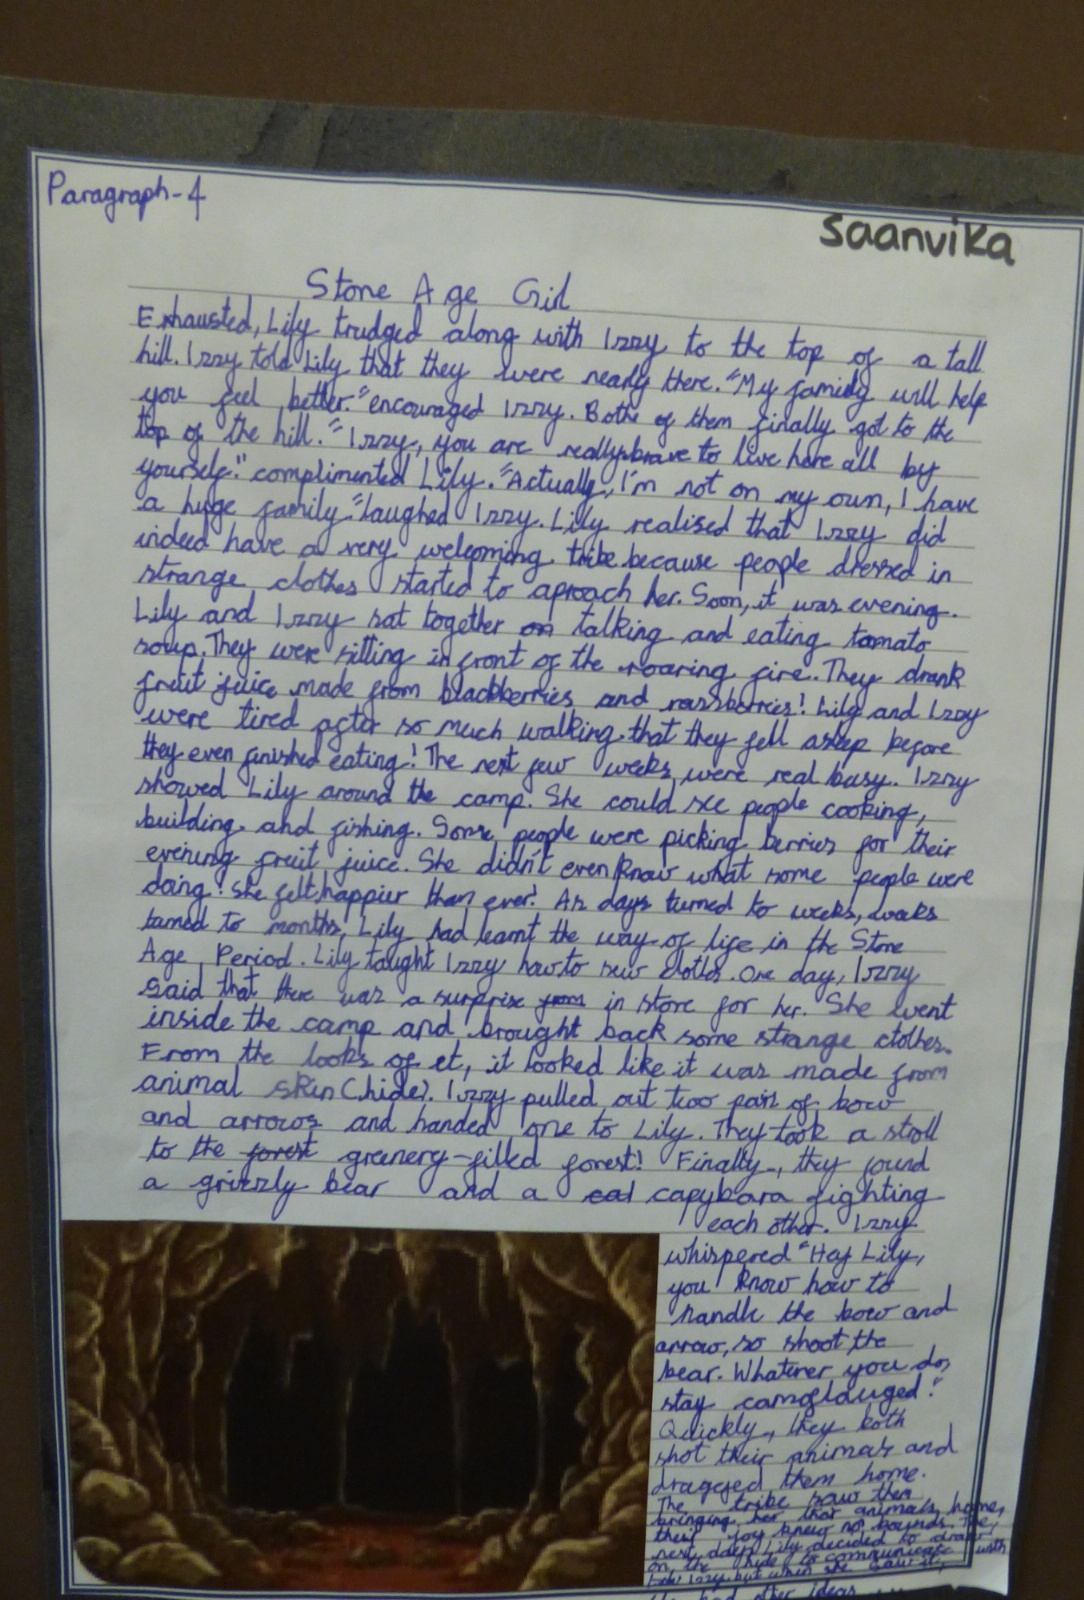 Paragraph-4
saanvika
Stone Age Girl
Exhausted, Lily trudged along with Izzy to the top of a tall
hill. Izzy told Lily that they were nearly there. "My family will help
you feel better." encouraged Izzy. Both of them finally got to the
top of the hill. "Izzy, you are really brave to live here all by
yourself." complimented Lily. "Actually, I'm not on my own, I have
a huge family" laughed Izzy. Lily realised that Izzy did
indeed have a very welcoming tribe because people dressed in
strange clothes started to aproach her. Soon, it was evening.
Lily and Izzy sat together on talking and eating tomato
soup. They were sitting in front of the roaring fire. They drank
fruit juice made from blackberries and rassberries! Lily and Izzy
were tired after so much walking that they fell asleep before
they even finished eating! The next few weeks were real busy. Izzy
showed Lily around the camp. She could see people cooking,
building and fishing. Some people were picking berries for their
evening fruit juice. She didn't even know what some people were
doing! She felt happier than ever! As days turned to weeks, weeks
turned to months, Lily had learnt the way of life in the Stone
Age Period. Lily taught Izzy how to sew clothes. One day, Izzy
said that there was a surprise from in store for her. She went
inside the camp and brought back some strange clothes.
From the looks of et, it looked like it was made from
animal skin (hide). Izzy pulled out two pairs of bow
and arrows and handed one to Lily. They took a stroll
to the forest greenery-filled forest! Finally, they found
a grizzly bear and a capybara fighting
each other. Izzy
whispered "Hey Lily,
you know how to
handle the bow and
arrow, so shoot the
bear. Whatever you do,
stay camoflauged!"
Quickly, they both
shot their animals and
dragged them home.
The tribe saw them
bringing her that animals home,
their joy knew no bounds. The
next day, Lily decided to draw
on the hide to communicate with
Izzy but when she saw it,
she had other ideas